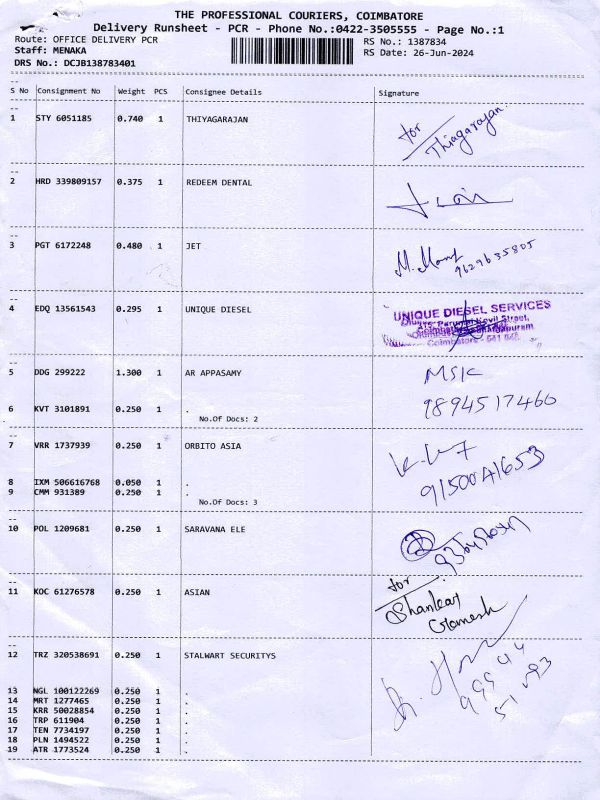 THE PROFESSIONAL COURIERS, COIMBATORE
Delivery Runsheet - PCR - Phone No.:0422-3505555 - Page No.:1
Route: OFFICE DELIVERY PCR
Staff: MENAKA
DRS No.: DCJB138783401
RS No.: 1387834
RS Date: 26-Jun-2024
S No Consignment No Weight PCS Consignee Details Signature
1 STY 6051185 0.740 1 THIYAGARAJAN
for
Thiagarajan
2 HRD 339809157 0.375 1 REDEEM DENTAL
3 PGT 6172248 0.480 1 JET
9629635805
4 EDQ 13561543 0.295 1 UNIQUE DIESEL
UNIQUE DIESEL SERVICES
5 DDG 299222 1.300 1 AR APPASAMY
MSK
9894517460
6 KVT 3101891 0.250 1 .
No.Of Docs: 2
7 VRR 1737939 0.250 1 ORBITO ASIA
9150041653
8 IXM 506616768 0.050 1 .
9 CMM 931389 0.250 1 .
No.Of Docs: 3
10 POL 1209681 0.250 1 SARAVANA ELE
11 KOC 61276578 0.250 1 ASIAN
for
Shankar
Ramesh
12 TRZ 320538691 0.250 1 STALWART SECURITYS
13 NGL 100122269 0.250 1 .
14 MRT 1277465 0.250 1 .
15 KRR 50028854 0.250 1 .
16 TRP 611904 0.250 1 .
17 TEN 7734197 0.250 1 .
18 PLN 1494522 0.250 1 .
19 ATR 1773524 0.250 1 .